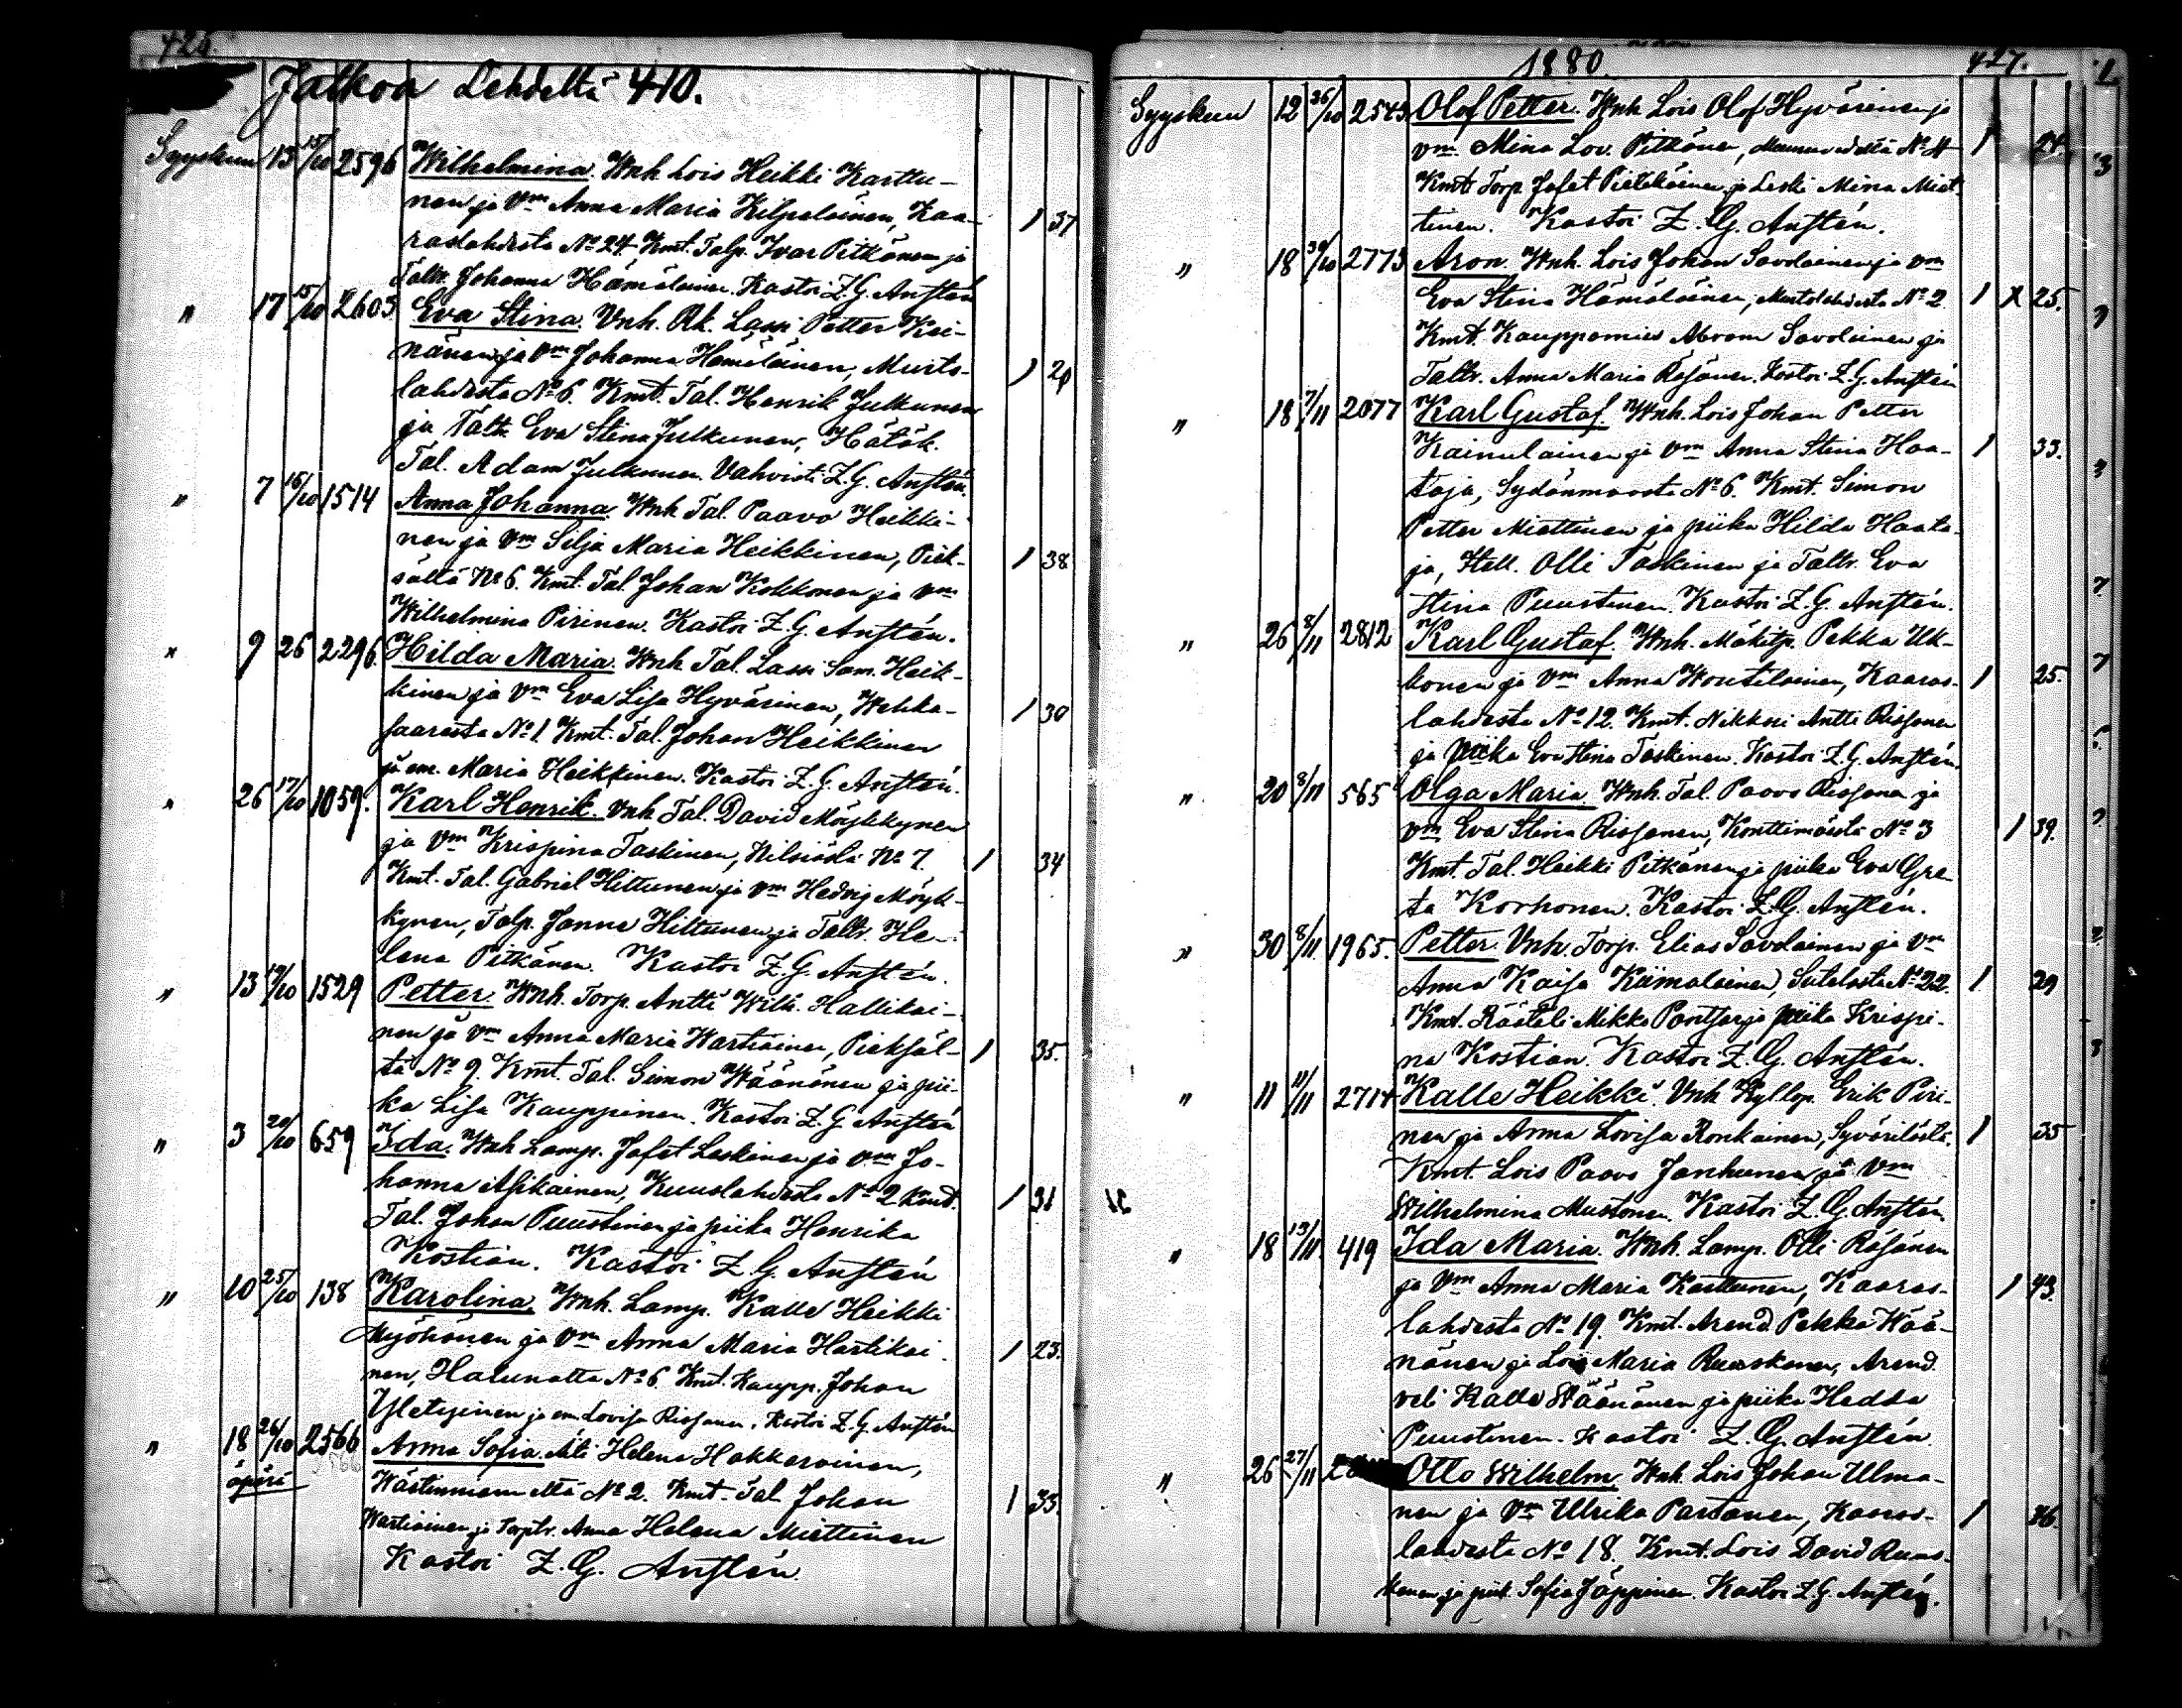 426.
Jatkoa Lehdeltä 410.
Syyskuun 13 15/10 2596 Wilhelmina. Wnh Lois Heikki Karttu-
nen ja Vm Anna Maria Kilpeläinen, Kaa- 1 37
raslahdesta No 24 Kmt. Talp. Ivar Pitkänen ja
Taltr. Johanna Hämäläinen. Kastoi Z. G. Anstén
" 17 15/10 2603 Eva Stina. Vnh. Rk. Lassi Petter Kei-
nänen ja Vm Johanna Hämäläinen, Murto- 1
lahdesta No 6. Kmt. Tal. Henrik Julkunen
ja Taltr. Eva Stina Julkunen, Hätäk.
Tal. Adam Julkunen. Vahvisti Z. G. Anstén.
" 7 16/10 1514 Anna Johanna. Wnh Tal. Paavo Heikki-
nen ja Vm Silja Maria Heikkinen, Piek- 1 38
sältä No 6. Kmt. Tal. Johan Kokkonen ja Vm
Wilhelmina Piirinen. Kastoi Z. G. Anstén.
" 9 26 2296 Hilda Maria. Wnh Tal. Lassi Sam. Heik-
kinen ja Vm Eva Lisa Hyvärinen, Wehka- 1 30
saaresta No 1. Kmt. Tal. Johan Heikkinen
ja em. Maria Heikkinen. Kastoi Z. G. Anstén.
" 26 17/10 1059. Karl Henrik. Vnh Tal. David Möykkynen
ja Vm Krispina Taskinen, Nilsiästä No 7. 1 34
Kmt. Tal. Gabriel Hiltunen ja Vm Hedvig Möyk-
kynen, Talp. Janne Hiltunen ja Taltr. He-
lena Pitkänen. Kastoi Z. G. Anstén.
" 13 19/10 1529 Petter. Wnh. Torp. Antti Wilh. Hallikai-
nen ja Vm Anna Maria Wartiainen, Pieksäl- 1 35.
tä No 9. Kmt. Tal. Simon Wäänänen ja pii-
ka Lisa Kauppinen. Kastoi Z. G. Anstén
" 3 20/10 659 Ida. Wnh Lamp. Jafet Laskinen ja Vm Jo-
hanna Asikainen, Kuuslahdesta No 2 Kmt. 1 31
Tal. Johan Puustinen ja piika Henrika
Kostian. Kastoi Z. G. Anstén
" 10 25/10 138 Karolina. Wnh. Lamp. Kalle Heikki
Myöhänen ja Vm Anna Maria Hartikai- 1 23.
nen, Halunalta No 6. Kmt. Kaupp. Johan
Yletyinen ja em. Lovisa Rissanen. Kastoi Z. G. Anstén
" 18 26/10 2566 Anna Sofia. Äiti Helena Hakkarainen,
äpärä Wästinniemeltä No 2. Kmt. Tal. Johan 1 33.
Wartiainen ja Torptr. Anna Helena Miettinen
Kastoi Z. G. Anstén.
1880. 427.
Syyskuun 12 26/10 2543 Olof Petter. Wnh Lois Olof Hyvärinen ja
vm. Mina Lov. Pitkänen, No 4 1 24.
Kmt. Torp. Jafet Pietikäinen ja Leski Mina Miet-
tinen. Kastoi Z. G. Anstén.
" 18 30/10 2773 Aron. Wnh. Lois Johan Savolainen ja Vm
Eva Stina Hämäläinen, Murtolahdesta No 2 1 X 25.
Kmt. Kauppamies Abram Savolainen ja
Taltr. Anna Maria Räsänen. Kastoi Z. G. Anstén
" 18 7/11 2077 Karl Gustaf. Wnh. Lois Johan Petter
Kainulainen ja Vm Anna Stina Haa- 1 33.
taja, Sydänmaasta No 6. Kmt. Simon
Petter Miettinen ja piika Hilda Haata-
ja, Itell. Olli Taskinen ja Taltr. Eva
Stina Puustinen. Kastoi Z. G. Anstén.
" 26 8/11 2812 Karl Gustaf. Wnh. Mäkitp. Pekka Uk-
konen ja Vm Anna Woutilainen, Kaaras- 1 25.
lahdesta No 12. Kmt. Nikkari Antti Rissanen
ja piika Eva Stina Taskinen. Kastoi Z. G. Anstén.
" 20 8/11 565 Olga Maria. Wnh. Tal. Paavo Rissanen ja
vm Eva Stina Rissanen, Konttimäestä No 3 1 39.
Kmt. Tal. Heikki Pitkänen ja piika Eva Gre-
ta Korhonen. Kastoi Z. G. Anstén.
" 30 8/11 1965. Petter. Vnh. Torp. Elias Savolainen ja Vm
Anna Kaisa Kiimalainen, No 22. 1 29
Kmt. Räätäli Mikko Pantsar ja piika Krispi-
na Kostian. Kastoi Z. G. Anstén.
" 11 11/11 2714 Kalle Heikki. Vnh Kyllop. Erik Piri-
nen ja Anna Lovisa Ronkainen, Syvärilästä. 1 35
Kmt. Lois Paavo Janhunen ja Vm
Wilhelmina Mustonen. Kastoi Z. G. Anstén.
" 18 13/11 419 Ida Maria. Wnh. Lamp. Olli Räsänen
ja Vm Anna Maria Karttunen, Kaaras- 1 43.
lahdesta No 19. Kmt. Arend. Pekka Wää-
nänen ja Lois Maria Ruuskanen, Arend.
veli Kalle Wäänänen ja piika Hedda
Puustinen. Kastoi Z. G. Anstén.
" 26 27/11 Otto Wilhelm. Wnh. Lois Johan Ulma-
nen ja Vm Ulrika Partanen, Kaaras- 1 26.
lahdesta No 18. Kmt. Lois David Ruus-
kanen ja piik. Sofia Jäppinen. Kastoi Z. G. Anstén.